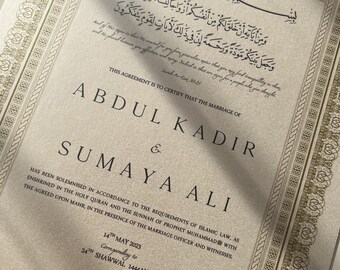 وَمِنْ آيَاتِهِ أَنْ خَلَقَ لَكُم مِّنْ أَنفُسِكُمْ أَزْوَاجًا لِّتَسْكُنُوا إِلَيْهَا
وَجَعَلَ بَيْنَكُم مَّوَدَّةً وَرَحْمَةً إِنَّ فِي ذَٰلِكَ لَآيَاتٍ لِّقَوْمٍ يَتَفَكَّرُونَ
THIS AGREEMENT IS TO CERTIFY THAT THE MARRIAGE OF
ABDUL KADIR
&
SUMAYA ALI
HAS BEEN SOLEMNISED IN ACCORDANCE TO THE REQUIREMENTS OF ISLAMIC LAW, AS
ENSHRINED IN THE HOLY QURAN AND THE SUNNAH OF PROPHET MUHAMMAD ﷺ WITH
THE AGREED UPON MAHR, IN THE PRESENCE OF THE MARRIAGE OFFICER AND WITNESSES.
14TH MAY 2023
Corresponding to
24TH SHAWWAL 1444